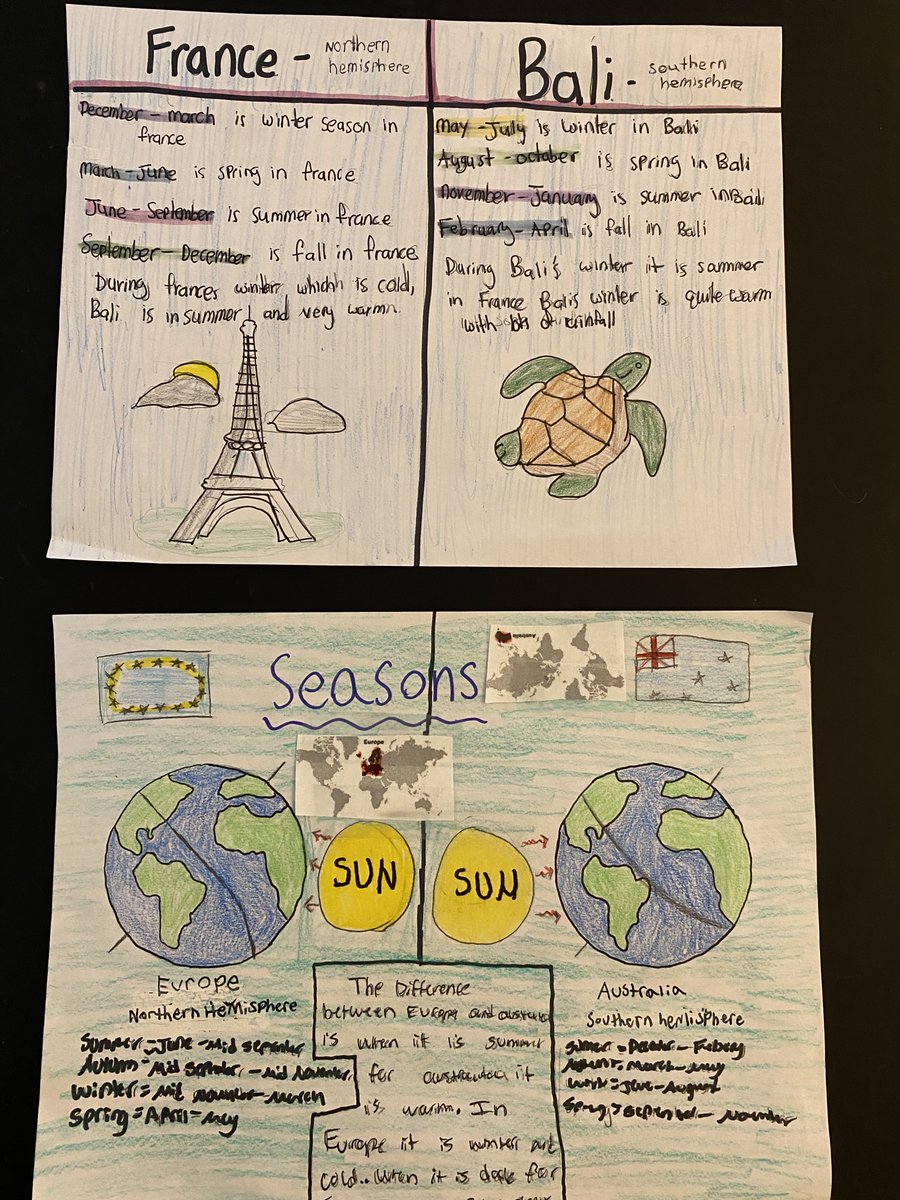 France - Northern
hemisphere
December - march is winter season in
france
March - June is spring in france
June - September is summer in france
September - December is fall in france
During frances winter which is cold,
Bali is in summer and very warm.
Bali - southern
hemisphere
May - July is winter in Bali
August - october is spring in Bali
November - January is summer in Bali
February - April is fall in Bali
During Bali's winter it is summer
in France Balis winter is quite warm
with of rainfall
Seasons
Australia
Europe
SUN
SUN
Europe
Northern Hemisphere
Summer = June - mid september
Autumn = mid september - mid November
Winter = mid november - march
Spring = April - may
The Difference
between Europe and
is when it is summer
for it
is warm. In
Europe it is winter and
cold.. when it is for
Australia
Southern hemisphere
= -
= march - may
= June - August
= september - november